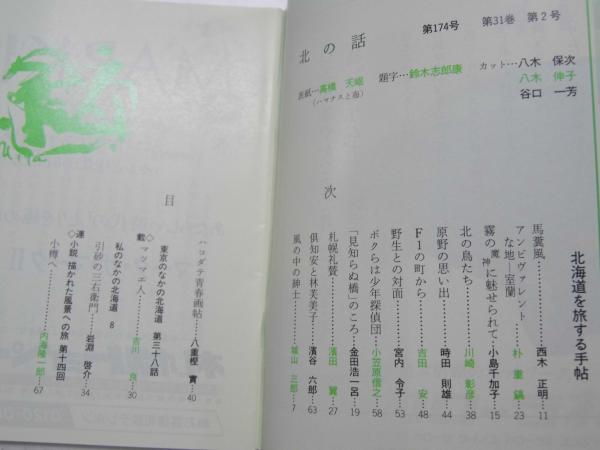 第174号　第31巻　第２号
北の話
表紙…高橋　天岨
（ハマナスと海）
題字…鈴木志郎康
カット…八木　保次
八木　伸子
谷口　一芳
北海道を旅する手帖
馬糞風……西木　正明…11
アンビヴァレント
な地―室蘭……朴　重鎬…23
霧の魔神に魅せられて…小島千加子…15
北の鳥たち……川崎　彰彦…38
原野の思い出……時田　則雄…44
Ｆ１の町から……吉田　安…48
野生との対面……宮内　令子…53
ボクらは少年探偵団…小笠原信之…58
「見知らぬ橋」のころ…金田浩一呂…19
札幌礼賛……濱田　翼…27
倶知安と林芙美子…濱谷　六郎…63
風の中の紳士……城山　三郎…7
目　次
ハコダテ青春画帖……八重樫　實…40
東京のなかの北海道　第三十八話
マツマエ人……吉川　良…30
私のなかの北海道　8
引砂の三右衛門……岩淵　啓介…34
小説　描かれた風景への旅　第十四回
小樽へ……内海隆一郎…67
◇連載◇